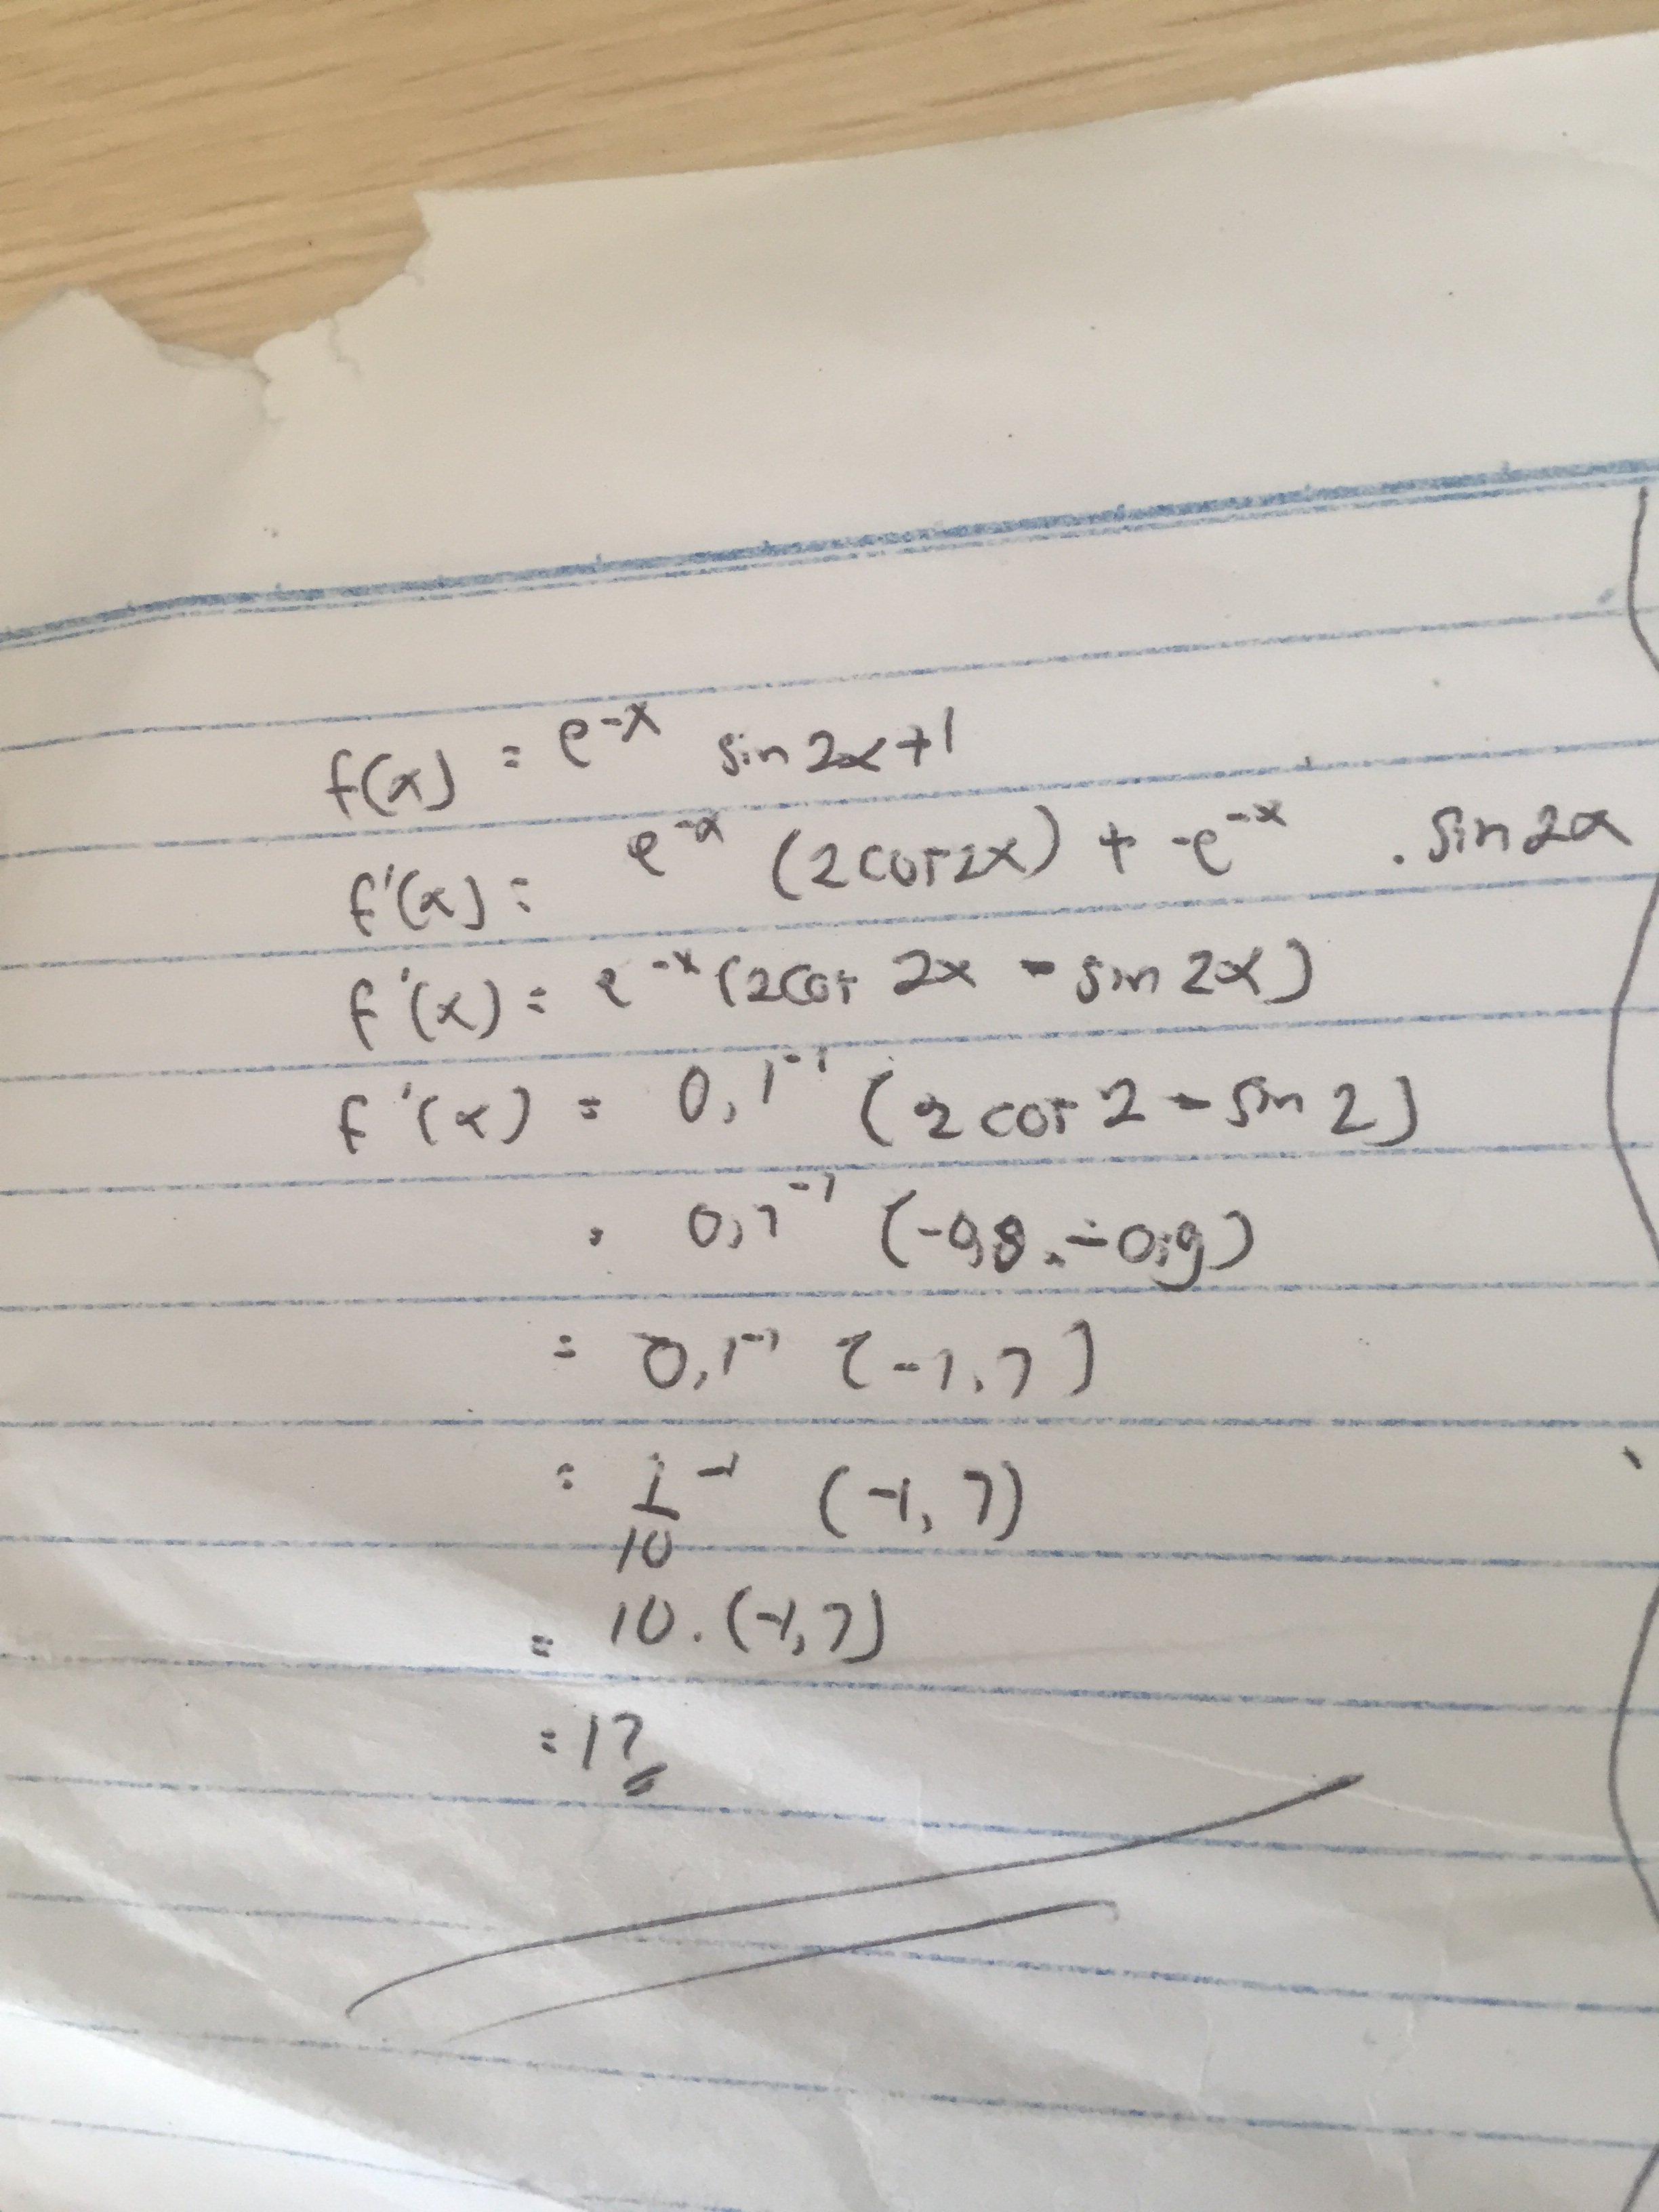 f(x) = e^-x sin 2x+1
f'(x) = e^-x (2cos2x) + -e^-x . sin 2x
f'(x) = e^-x (2cos 2x - sin 2x)
f'(x) = 0,1^-1 (2 cos 2 - sin 2)
= 0,1^-1 (-0,8 . -0,9)
= 0,1^-1 (-1,7)
= 1/10^-1 (-1,7)
= 10. (-1,7)
= 17